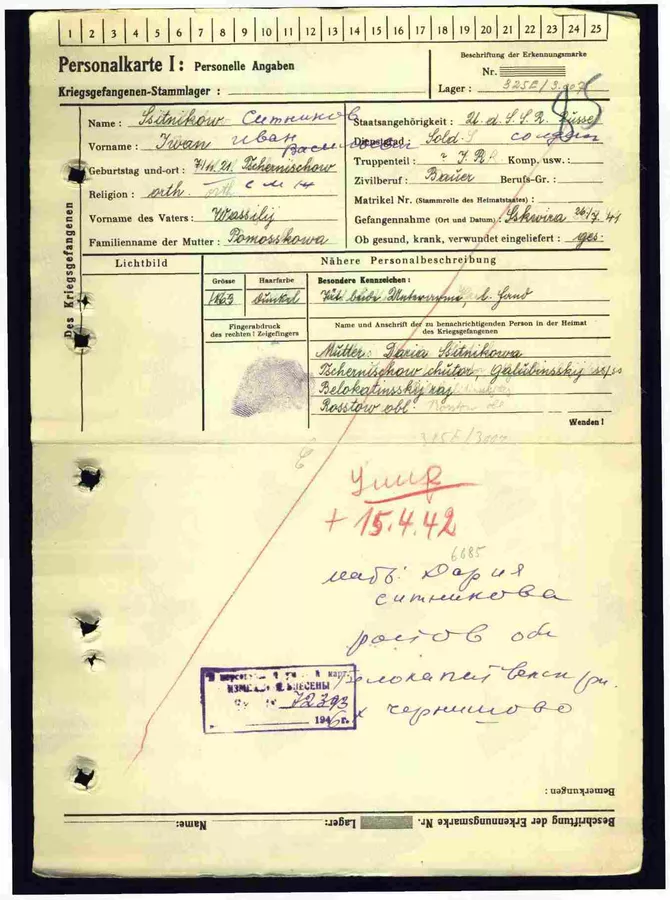 1 2 3 4 5 6 7 8 9 10 11 12 13 14 15 16 17 18 19 20 21 22 23 24 25
Personalkarte I: Personelle Angaben
Kriegsgefangenen-Stammlager :
Beschriftung der Erkennungsmarke
Nr.
Lager : 325E/3.907
Des Kriegsgefangenen
Name : Ssitnikow Ситников
Vorname : Iwan Иван
Геburtstag und-ort : 7.11.21. Tschernischow
Religion : orth.
Vorname des Vaters : Wassilij
Familienname der Mutter : Pomosskowa
Staatsangehörigkeit : U.d.S.S.R. Russe
Dienstgrad : Sold. солдат
Truppenteil : J.R. Komp. usw.:
Zivilberuf : Bauer Berufs-Gr. :
Matrikel Nr. (Stammrolle des Heimatstaates) :
Gefangennahme (Ort und Datum) : Skwira
Ob gesund, krank, verwundet eingeliefert : ges.
Lichtbild
Nähere Personalbeschreibung
Grösse
Haarfarbe
Besondere Kennzeichen :
163 dunkel Tät. beide Unterarme, l. Hand
Fingerabdruck
des rechten! Zeigefingers
Name und Anschrift der zu benachrichtigenden Person in der Heimat
des Kriegsgefangenen
Mutter: Daria Ssitnikowa
Tschernischow chutor, Galubinsskij
Belokatinsskij raj
Rosstow obl.
Wenden!
325E/3907
умер
+ 15.4.42
6685
мать: Дария
ситникова
ростов обл
х чернишово
карт.
ИЗМЕНЕНИЯ ВНЕСЕНЫ
72393
1946 г.
Bemerkungen :
Beschriftung der Erkennungsmarke Nr. Lager: Name: